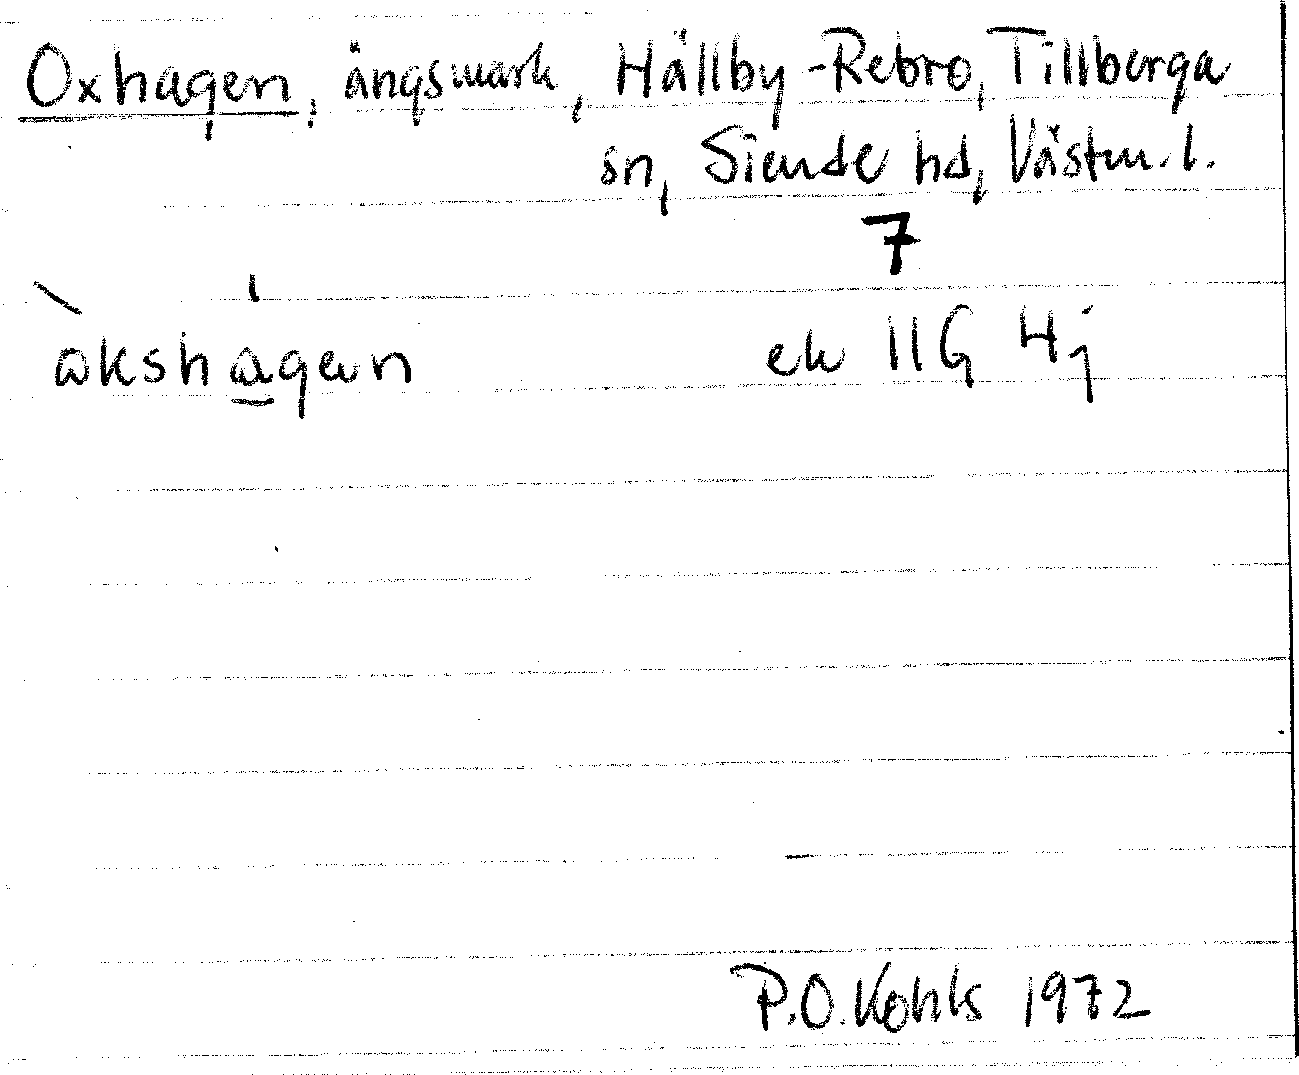 Oxhagen, ängsmark, Hällby-Rebro, Tillberga
sn, Siende hd, Västm. l.
7
åkshagen ek 11G 4j
P.O. Kohls 1972